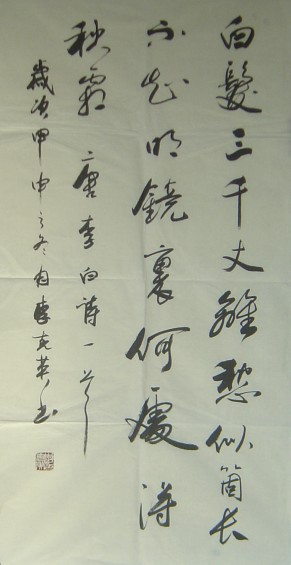 白髮三千丈離愁似箇长
不知明鏡裏何處得
秋霜 唐李白詩一首
歲次甲申之冬月李克英书